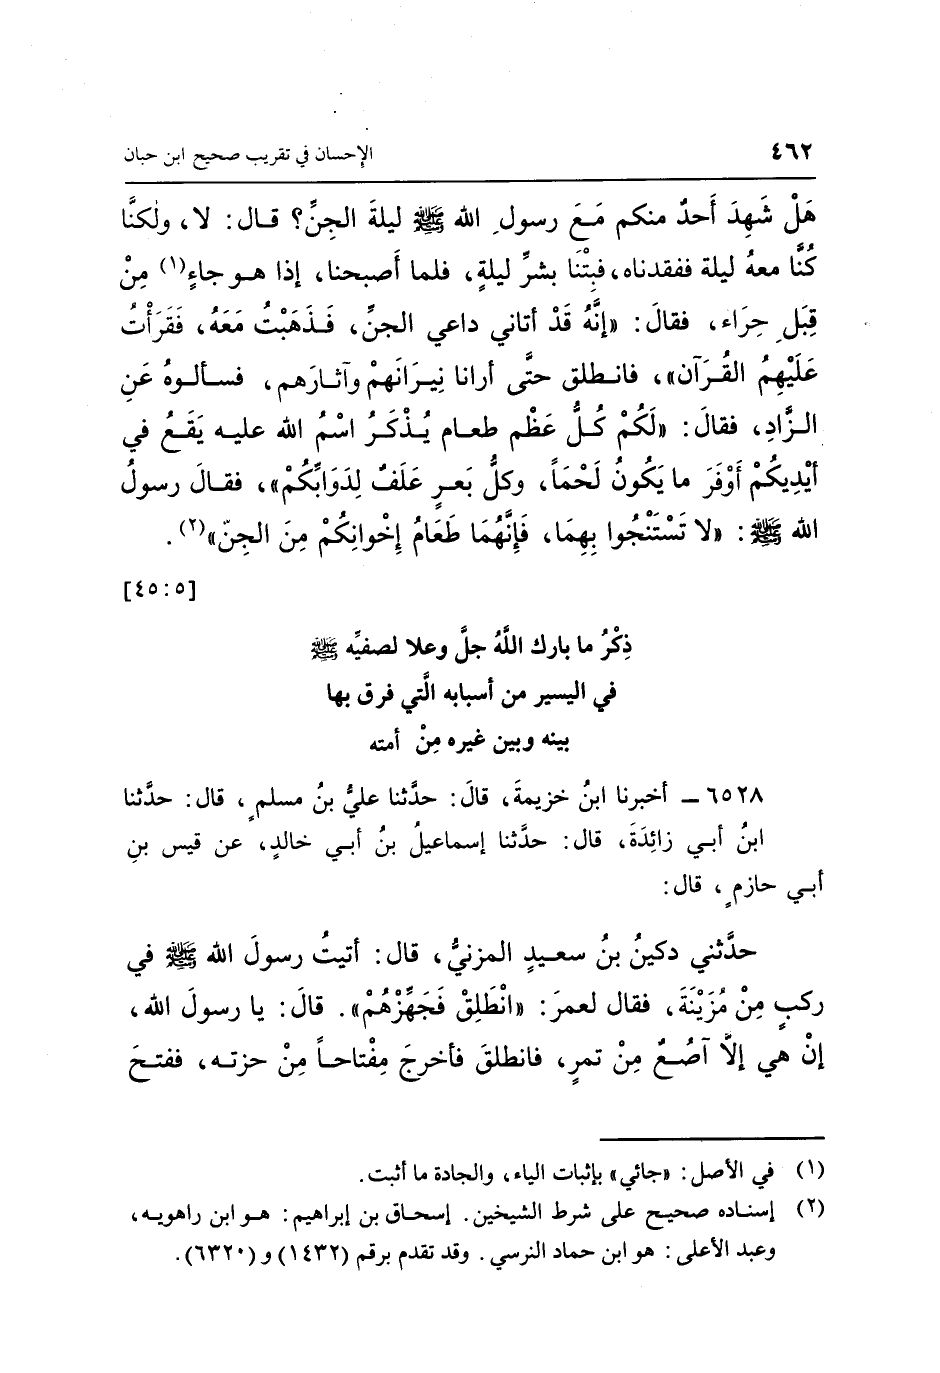 ٤٦٢ الإحسان في تقريب صحيح ابن حبان
هَلْ شَهِدَ أَحدٌ منكم مَعَ رسولِ الله ﷺ ليلةَ الجِنِّ؟ قال: لا، ولكنَّا
كُنَّا معهُ ليلة ففقدناه، فبِتْنَا بشرِّ ليلةٍ، فلما أَصبحنا، إذا هو جاءٍ(١) مِنْ
قِبَلِ حِرَاء، فقالَ: «إنَّهُ قَدْ أتاني داعي الجنِّ، فَذَهَبْتُ مَعَهُ، فَقَرَأْتُ
عَلَيْهِمُ القُرَآن»، فانطلق حتَّى أرانا نِيرَانَهمْ وآثارَهم، فسألوهُ عَنِ
الزَّادِ، فقالَ: «لَكُمْ كُلُّ عَظْم طعام يُذْكَرُ اسْمُ الله عليه يَقَعُ في
أيْدِيكُمْ أَوْفَرَ ما يَكُونُ لَحْمَاً، وكلُّ بَعرٍ عَلَفٌ لِدَوَابِّكُمْ»، فقالَ رسولُ
الله ﷺ: «لا تَسْتَنْجُوا بِهِمَا، فَإِنَّهُمَا طَعَامُ إخْوانِكُمْ مِنَ الجِنّ»(٢).
[٤٥:٥]
ذِكْرُ ما بارك اللَّهُ جلَّ وعلا لصفيِّه ﷺ
في اليسير من أسبابه الَّتي فرق بها
بينه وبين غيره مِنْ أمته
٦٥٢٨ ـ أخبرنا ابنُ خزيمةَ، قالَ: حدَّثنا عليُّ بنُ مسلمٍ، قال: حدَّثنا
ابنُ أبي زائِدَةَ، قال: حدَّثنا إسماعيلُ بنُ أبي خالدٍ، عن قيس بنِ
أبي حازمٍ، قال:
حدَّثني دكينُ بنُ سعيدٍ المزنيُّ، قال: أتيتُ رسولَ الله ﷺ في
ركبٍ مِنْ مُزَيْنَةَ، فقال لعمرَ: «انْطَلِقْ فَجَهِّزْهُمْ». قالَ: يا رسولَ الله،
إنْ هي إلَّا آصُعٌ مِنْ تمرٍ، فانطلقَ فأخرجَ مِفْتاحاً مِنْ حزته، ففتحَ
(١) في الأصل: «جائي» بإثبات الياء، والجادة ما أثبت.
(٢) إسناده صحيح على شرط الشيخين. إسحاق بن إبراهيم: هو ابن راهويه،
وعبد الأعلى: هو ابن حماد النرسي. وقد تقدم برقم (١٤٣٢) و (٦٣٢٠).